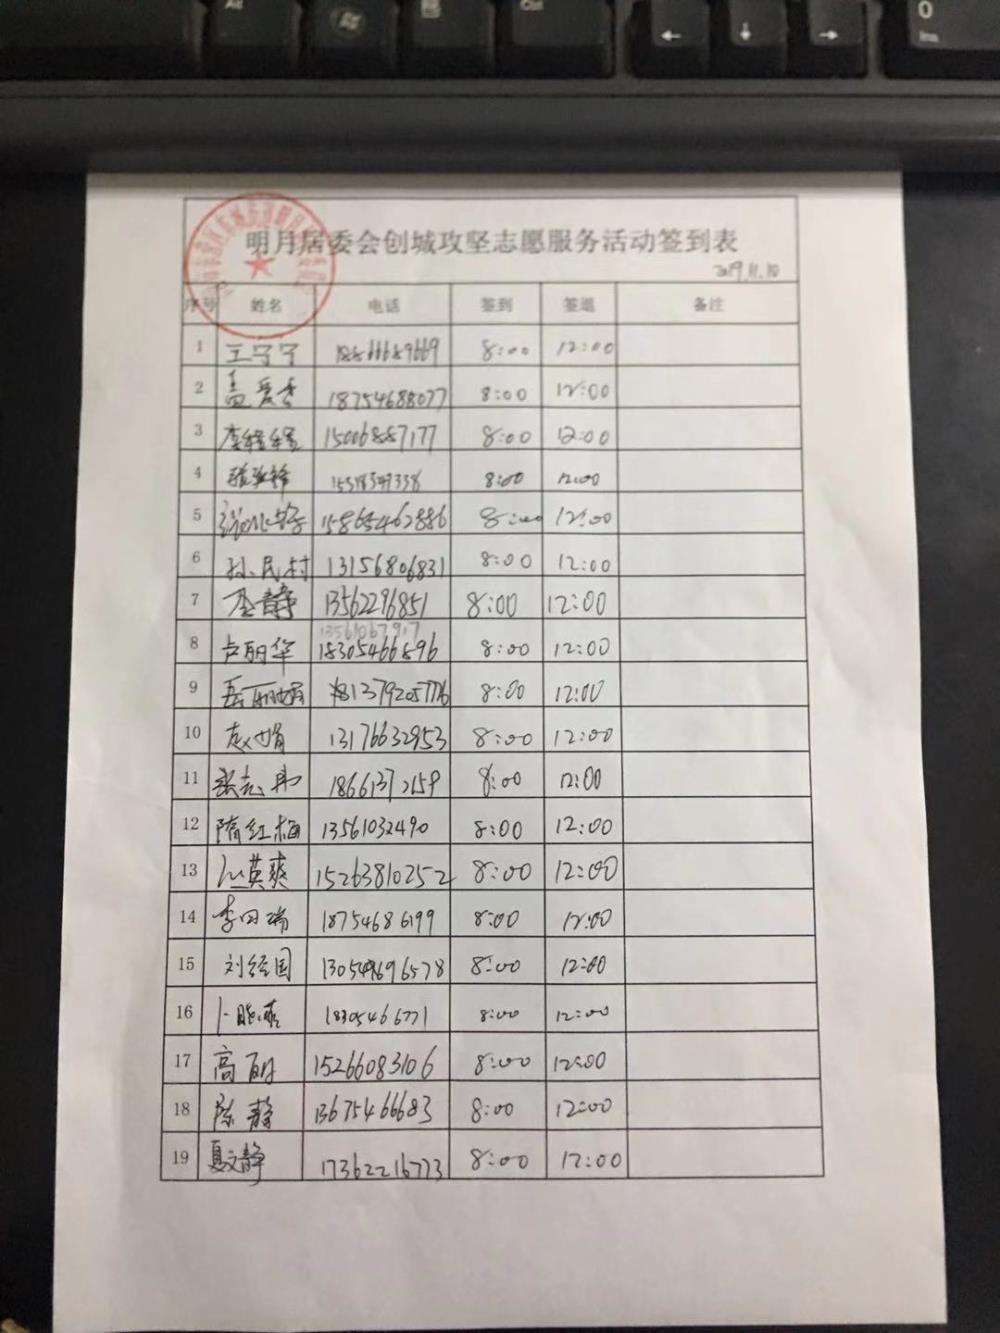 明月居委会创城攻坚志愿服务活动签到表
2019.11.10
序号 姓名 电话 签到 签退 备注
1 王宁宁 8:00 12:00
2 孟爱香 18754688077 8:00 12:00
3 15006887177 8:00 12:00
4 8:00 12:00
5 15865462886 8:00 12:00
6 孙民村 13156806831 8:00 12:00
7 李静 13562296851 8:00 12:00
13561067917
8 卢丽华 18305466896 8:00 12:00
9 岳丽娟 8:00 12:00
10 赵娟 13176632953 8:00 12:00
11 8:00 12:00
12 隋红梅 13561032490 8:00 12:00
13 英爽 15263810252 8:00 12:00
14 18754686199 8:00 12:00
15 刘经国 8:00 12:00
16 18305466771 8:00 12:00
17 高丽 15266083106 8:00 12:00
18 陈静 13675466683 8:00 12:00
19 夏文静 17362216773 8:00 12:00